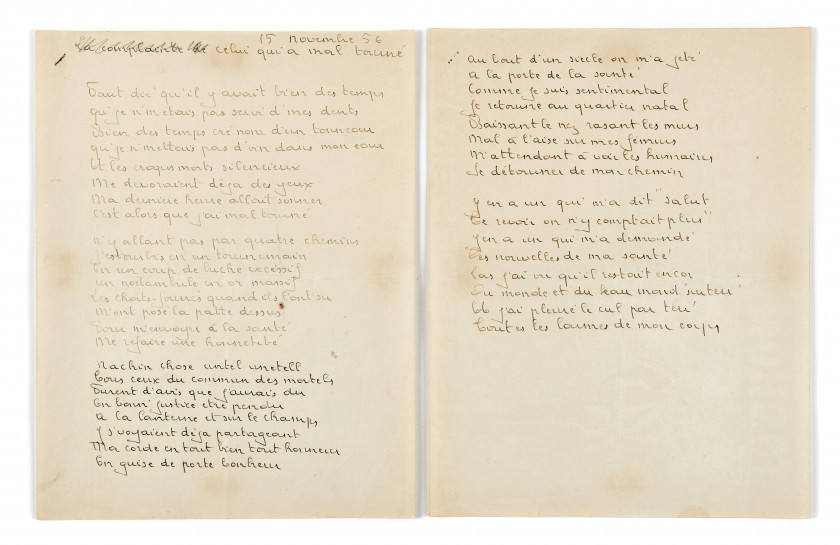 15 Novembre 56
La complainte de celui qui a mal tourné
Faut dir' qu'il y avait bien des temps
qu'je n'm'étais pas servi d'mes dents
Bien des temps cré nom d'un tonneau
qu'je n'mettais pas d'vin dans mon eau
Et les croqu'morts silencieux
Me dévoraient déja des yeux
Ma dernière heure allait sonner
C'est alors que j'ai mal tourné
N'y allant pas par quatre chemins
J'estourbis en un tournemain
En un coup de buche excessif
un noctambule en or massif
Les chats-fourrés quand ils l'ont su
M'ont posé la patte dessus
Pour m'envoyer à la santé
Me refaire une honnêteté
Machin chose untel unetell
Tous ceux du commun des mortels
Furent d'avis que j'aurais du
En bonn' justice etre pendu
A la lanterne et sur le champs
Y s'voyaient déja partageant
Ma corde en tout bien tout honneur
En guise de porte bonheur
Au bout d'un siècle on m'a jeté
A la porte de la santé
Comme je suis sentimental
Je retourne au quartier natal
Baissant le nez rasant les murs
Mal à l'aise sur mes fémurs
M'attendant à voir les humains
Se détourner de mon chemin
Y en a un qui m'a dit "salut
Te revoir on n'y comptait plus"
Y en a un qui m'a demandé
Des nouvelles de ma santé
Lors j'ai vu qu'il restait encor
Du monde et du beau mond' sur terr'
Et j'ai pleuré le cul par terr'
Toutes les larmes de mon corps